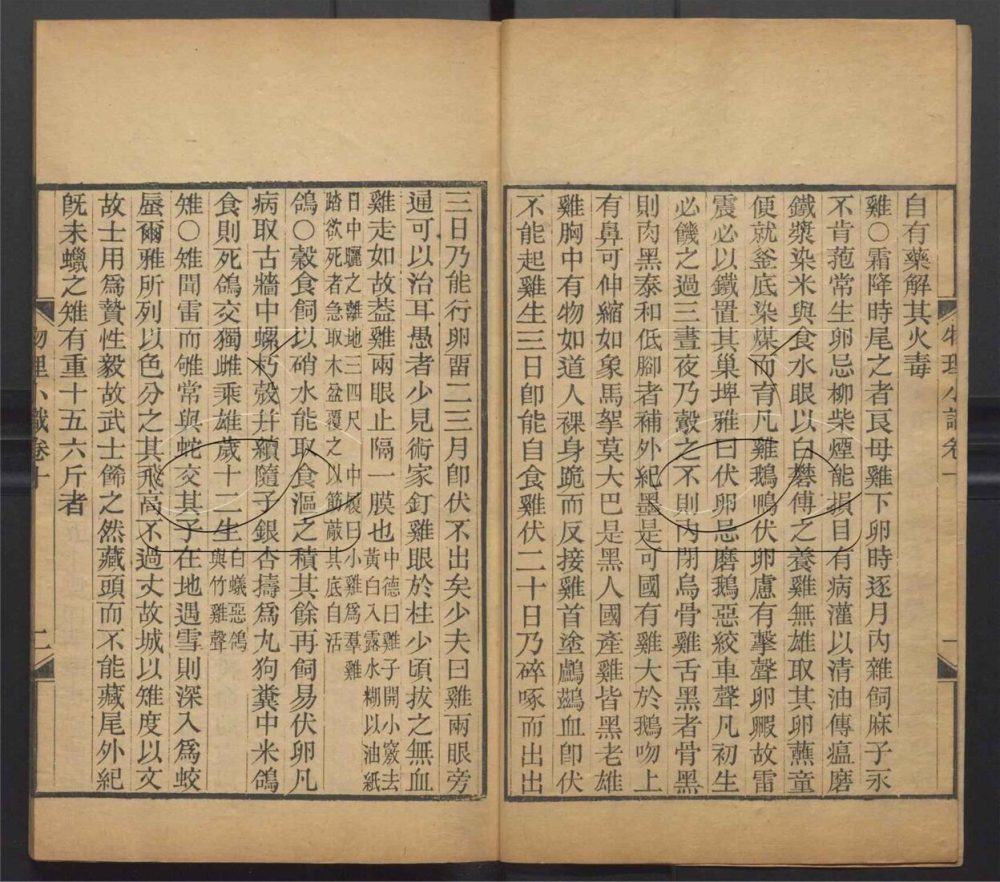 自有藥解其火毒
雞○霜降時尾之者良母雞下卵時逐月內雜飼麻子永
不肯菢常生卵忌柳柴煙能損目有病灌以清油傳瘟磨
鐵漿染米與食水眼以白礬傳之養雞無雄取其卵蘸童
便就釜底染煤而育凡雞鵝鴨伏卵慮有擊聲卵毈故雷
震必以鐵置其巢埤雅曰伏卵忌磨鵝惡絞車聲凡初生
必饑之過三晝夜乃㝅之不則內閉烏骨雞舌黑者骨黑
則肉黑泰和低腳者補外紀墨是可國有雞大於鵝吻上
有鼻可伸縮如象馬拏莫大巴是黑人國產雞皆黑老雄
雞胸中有物如道人裸身跪而反接雞首塗鸕鷀血卽伏
不能起雞生三日卽能自食雞伏二十日乃碎啄而出出
三日乃能行卵畱二三月卽伏不出矣少夫曰雞兩眼旁
通可以治耳愚者少見術家釘雞眼於柱少頃拔之無血
雞走如故葢雞兩眼止隔一膜也中德曰雞子開小竅去黃白入露水糊以油紙
日中曬之離地三四尺 中履曰小雞爲羣雞踏欲死者急取木盆覆之以筯敲其底自活
鴿○穀食飼以硝水能取食漚之積其餘再飼易伏卵凡
病取古牆中螺朽殼幷續隨子銀杏擣爲丸狗糞中米鴿
食則死鴿交獨雌乘雄歲十二生白蟻惡鴿與竹雞聲
雉○雉聞雷而雊常與蛇交其子在地遇雪則深入爲蛟
蜃爾雅所列以色分之其飛高不過丈故城以雉度以文
故士用爲贄性毅故武士餙之然藏頭而不能藏尾外紀
旣未蠟之雉有重十五六斤者
物理小識卷十 二